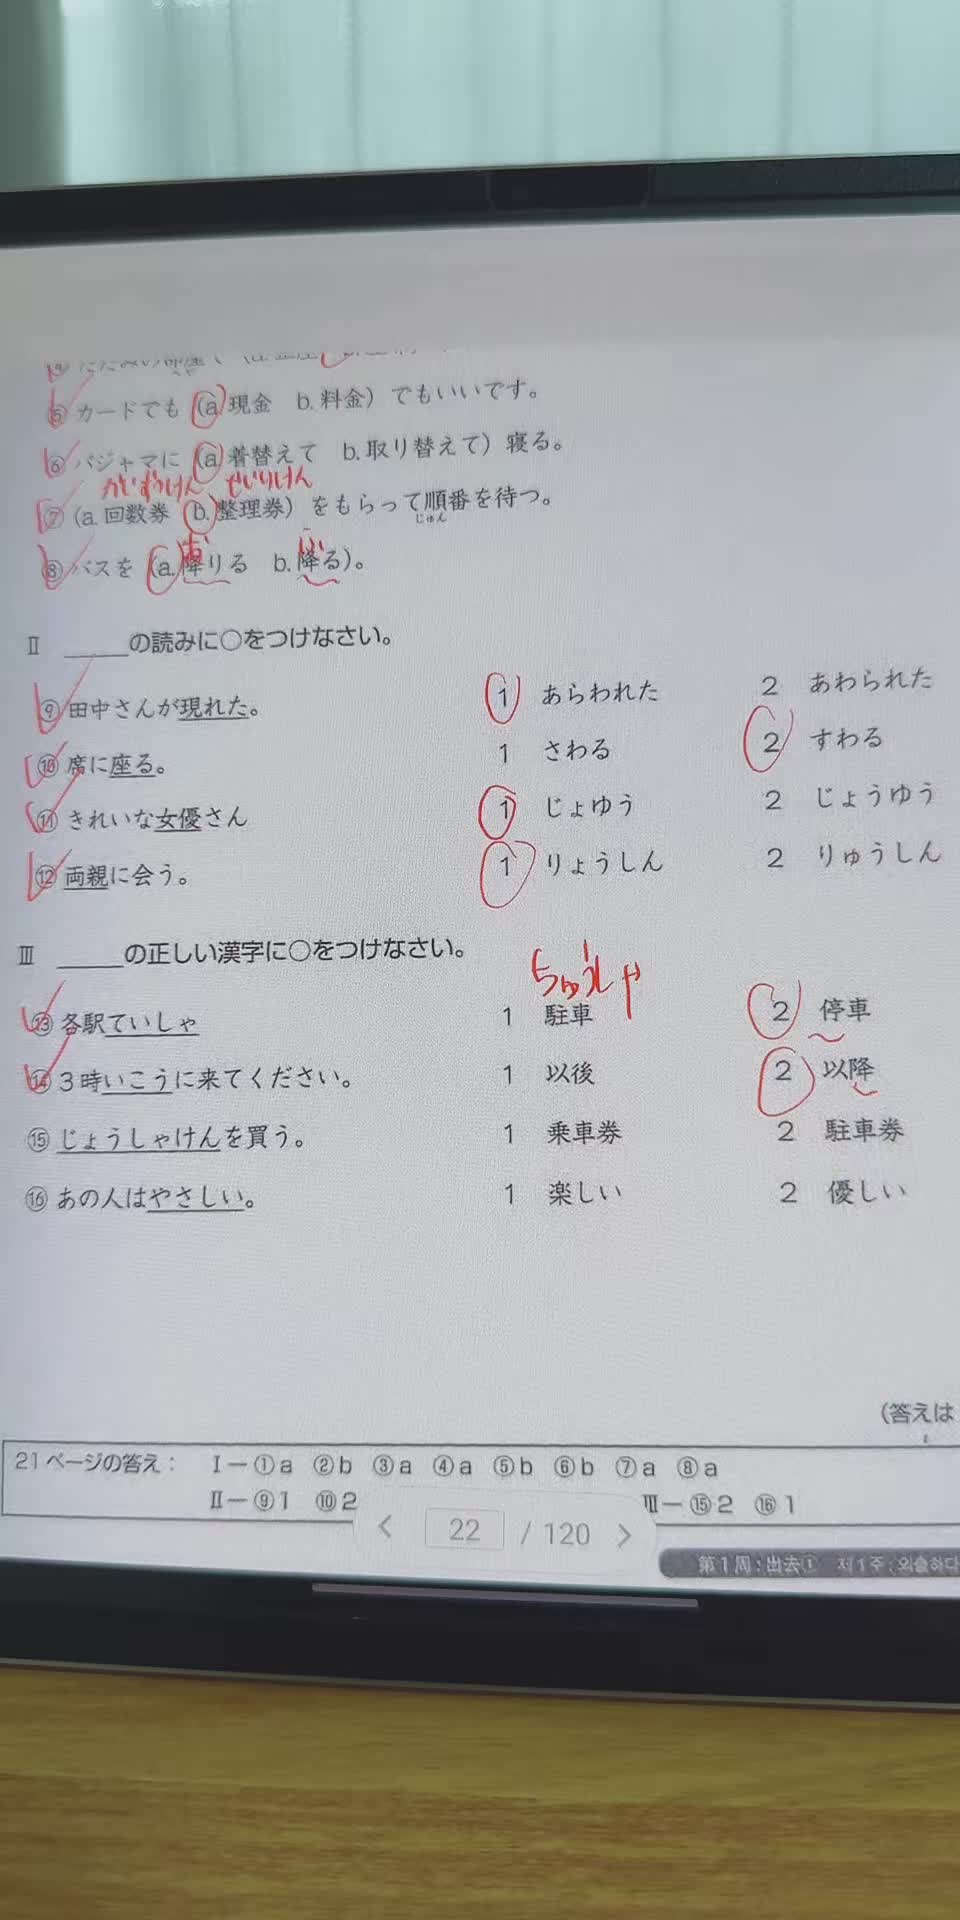 ⑤ カードでも (a. 現金 b. 料金) でもいいです。
⑥ パジャマに (a. 着替えて b. 取り替えて) 寝る。
かいすうけん せいりけん
⑦ (a. 回数券 b. 整理券) をもらって順番を待つ。
じゅん
お ふ
⑧ バスを (a. 降りる b. 降る)。
Ⅱ ____の読みに○をつけなさい。
⑨ 田中さんが現れた。 1 あらわれた 2 あわられた
⑩ 席に座る。 1 さわる 2 すわる
⑪ きれいな女優さん 1 じょゆう 2 じょうゆう
⑫ 両親に会う。 1 りょうしん 2 りゅうしん
Ⅲ ____の正しい漢字に○をつけなさい。
ちゅうしゃ
⑬ 各駅ていしゃ 1 駐車 2 停車
⑭ 3時いこうに来てください。 1 以後 2 以降
⑮ じょうしゃけんを買う。 1 乗車券 2 駐車券
⑯ あの人はやさしい。 1 楽しい 2 優しい
(答えは
21ページの答え: Ⅰ－①a ②b ③a ④a ⑤b ⑥b ⑦a ⑧a
Ⅱ－⑨1 ⑩2 Ⅲ－⑮2 ⑯1
< 22 / 120 >
第1周:出去① 제1주:외출하다